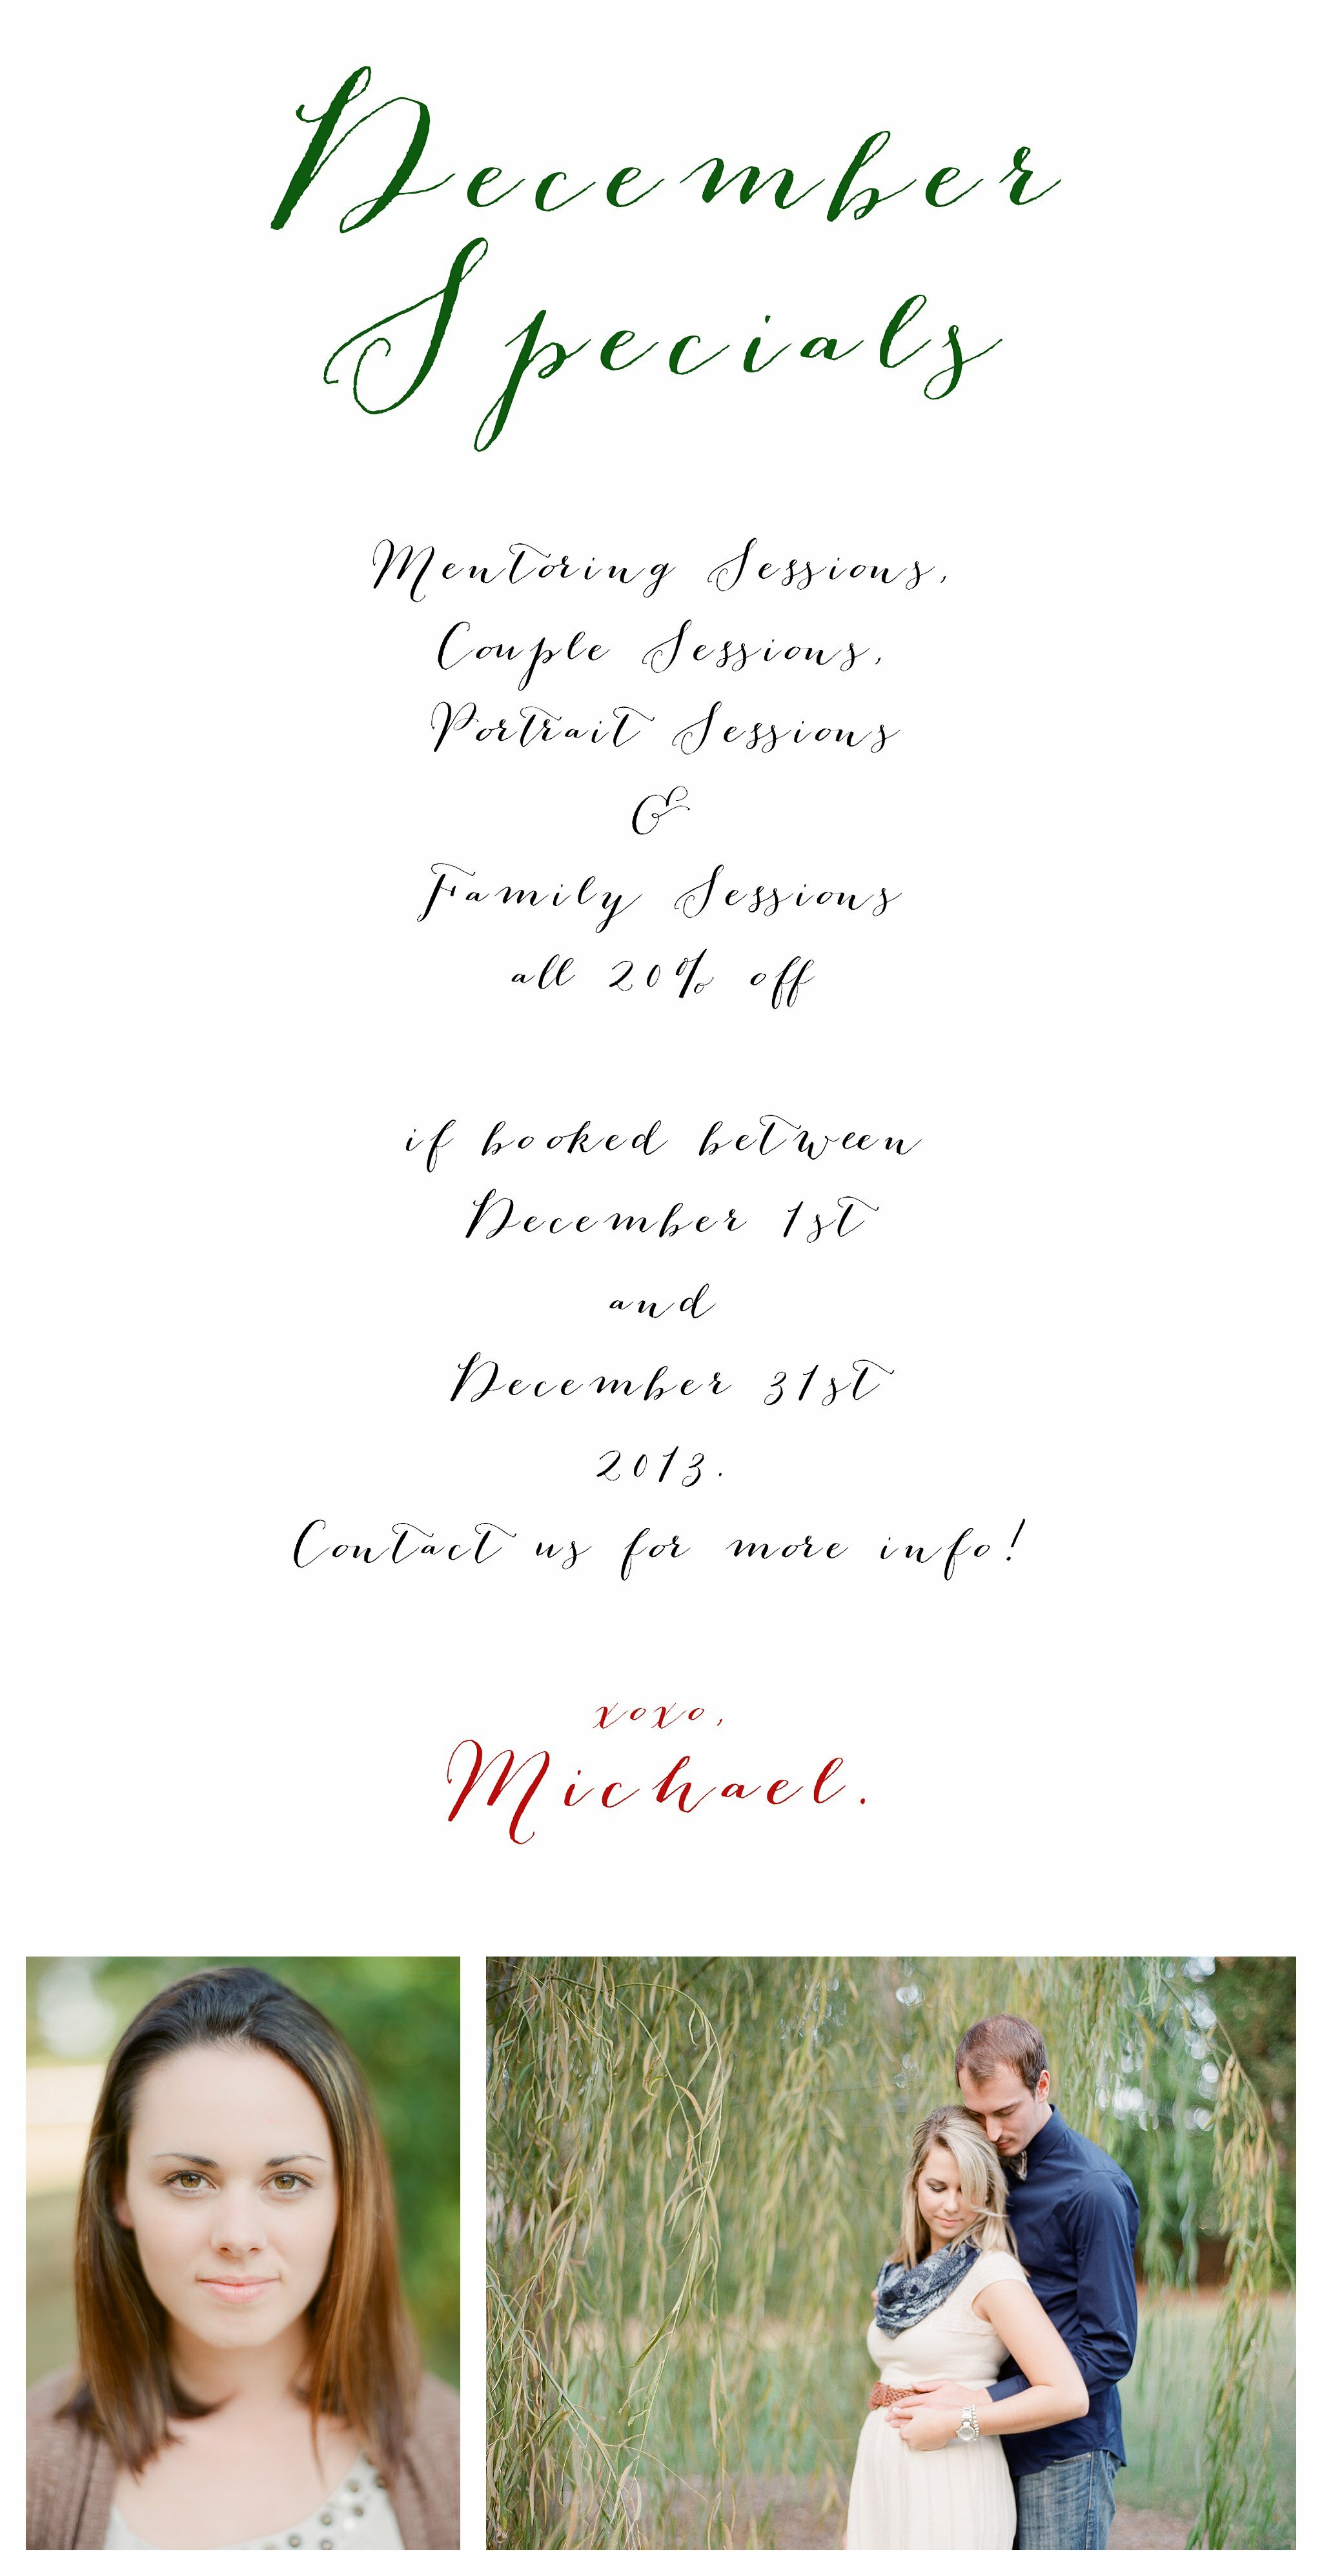 December
Specials
Mentoring Sessions,
Couple Sessions,
Portrait Sessions
&
Family Sessions
all 20% off
if booked between
December 1st
and
December 31st
2013.
Contact us for more info!
xoxo,
Michael.